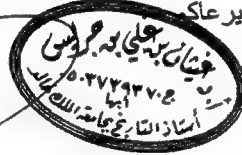 ير عاكـ
غيثان بن علي بن جريس
ج: ٠٥٠٣٧٢٩٣٧٠
أبها
أستاذ التاريخ بجامعة الملك خالد